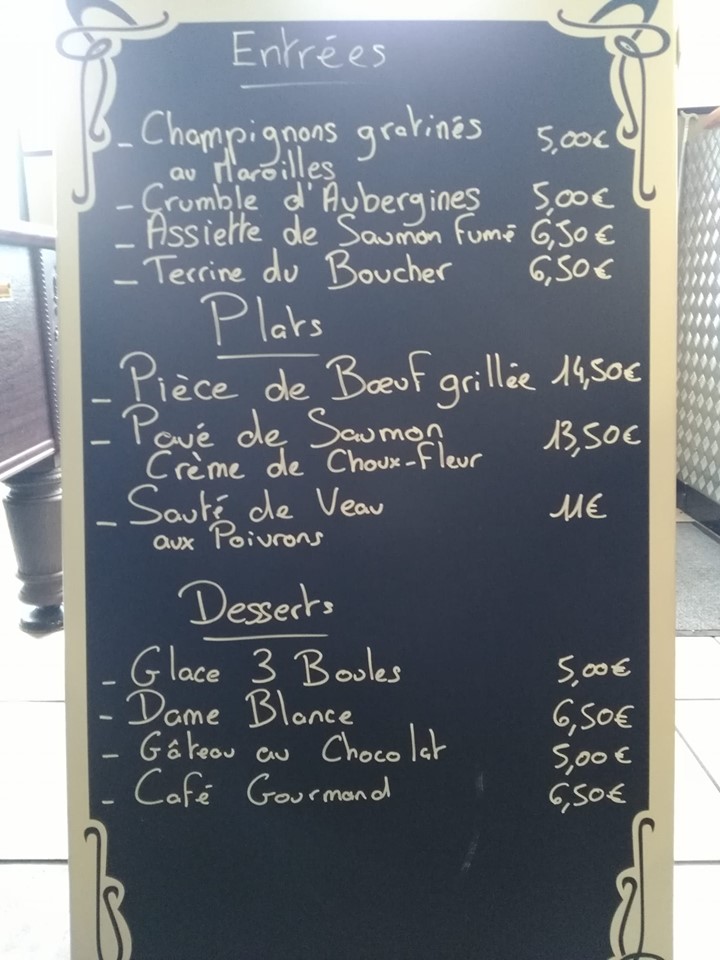 Entrées
- Champignons gratinés 5,00€
au Maroilles
- Crumble d'Aubergines 5,00€
- Assiette de Saumon Fumé 6,50€
- Terrine du Boucher 6,50€
Plats
- Pièce de Bœuf grillée 14,50€
- Pavé de Saumon 13,50€
Crème de Choux-Fleur
- Sauté de Veau 11€
aux Poivrons
Desserts
- Glace 3 Boules 5,00€
- Dame Blance 6,50€
- Gâteau au Chocolat 5,00€
- Café Gourmand 6,50€